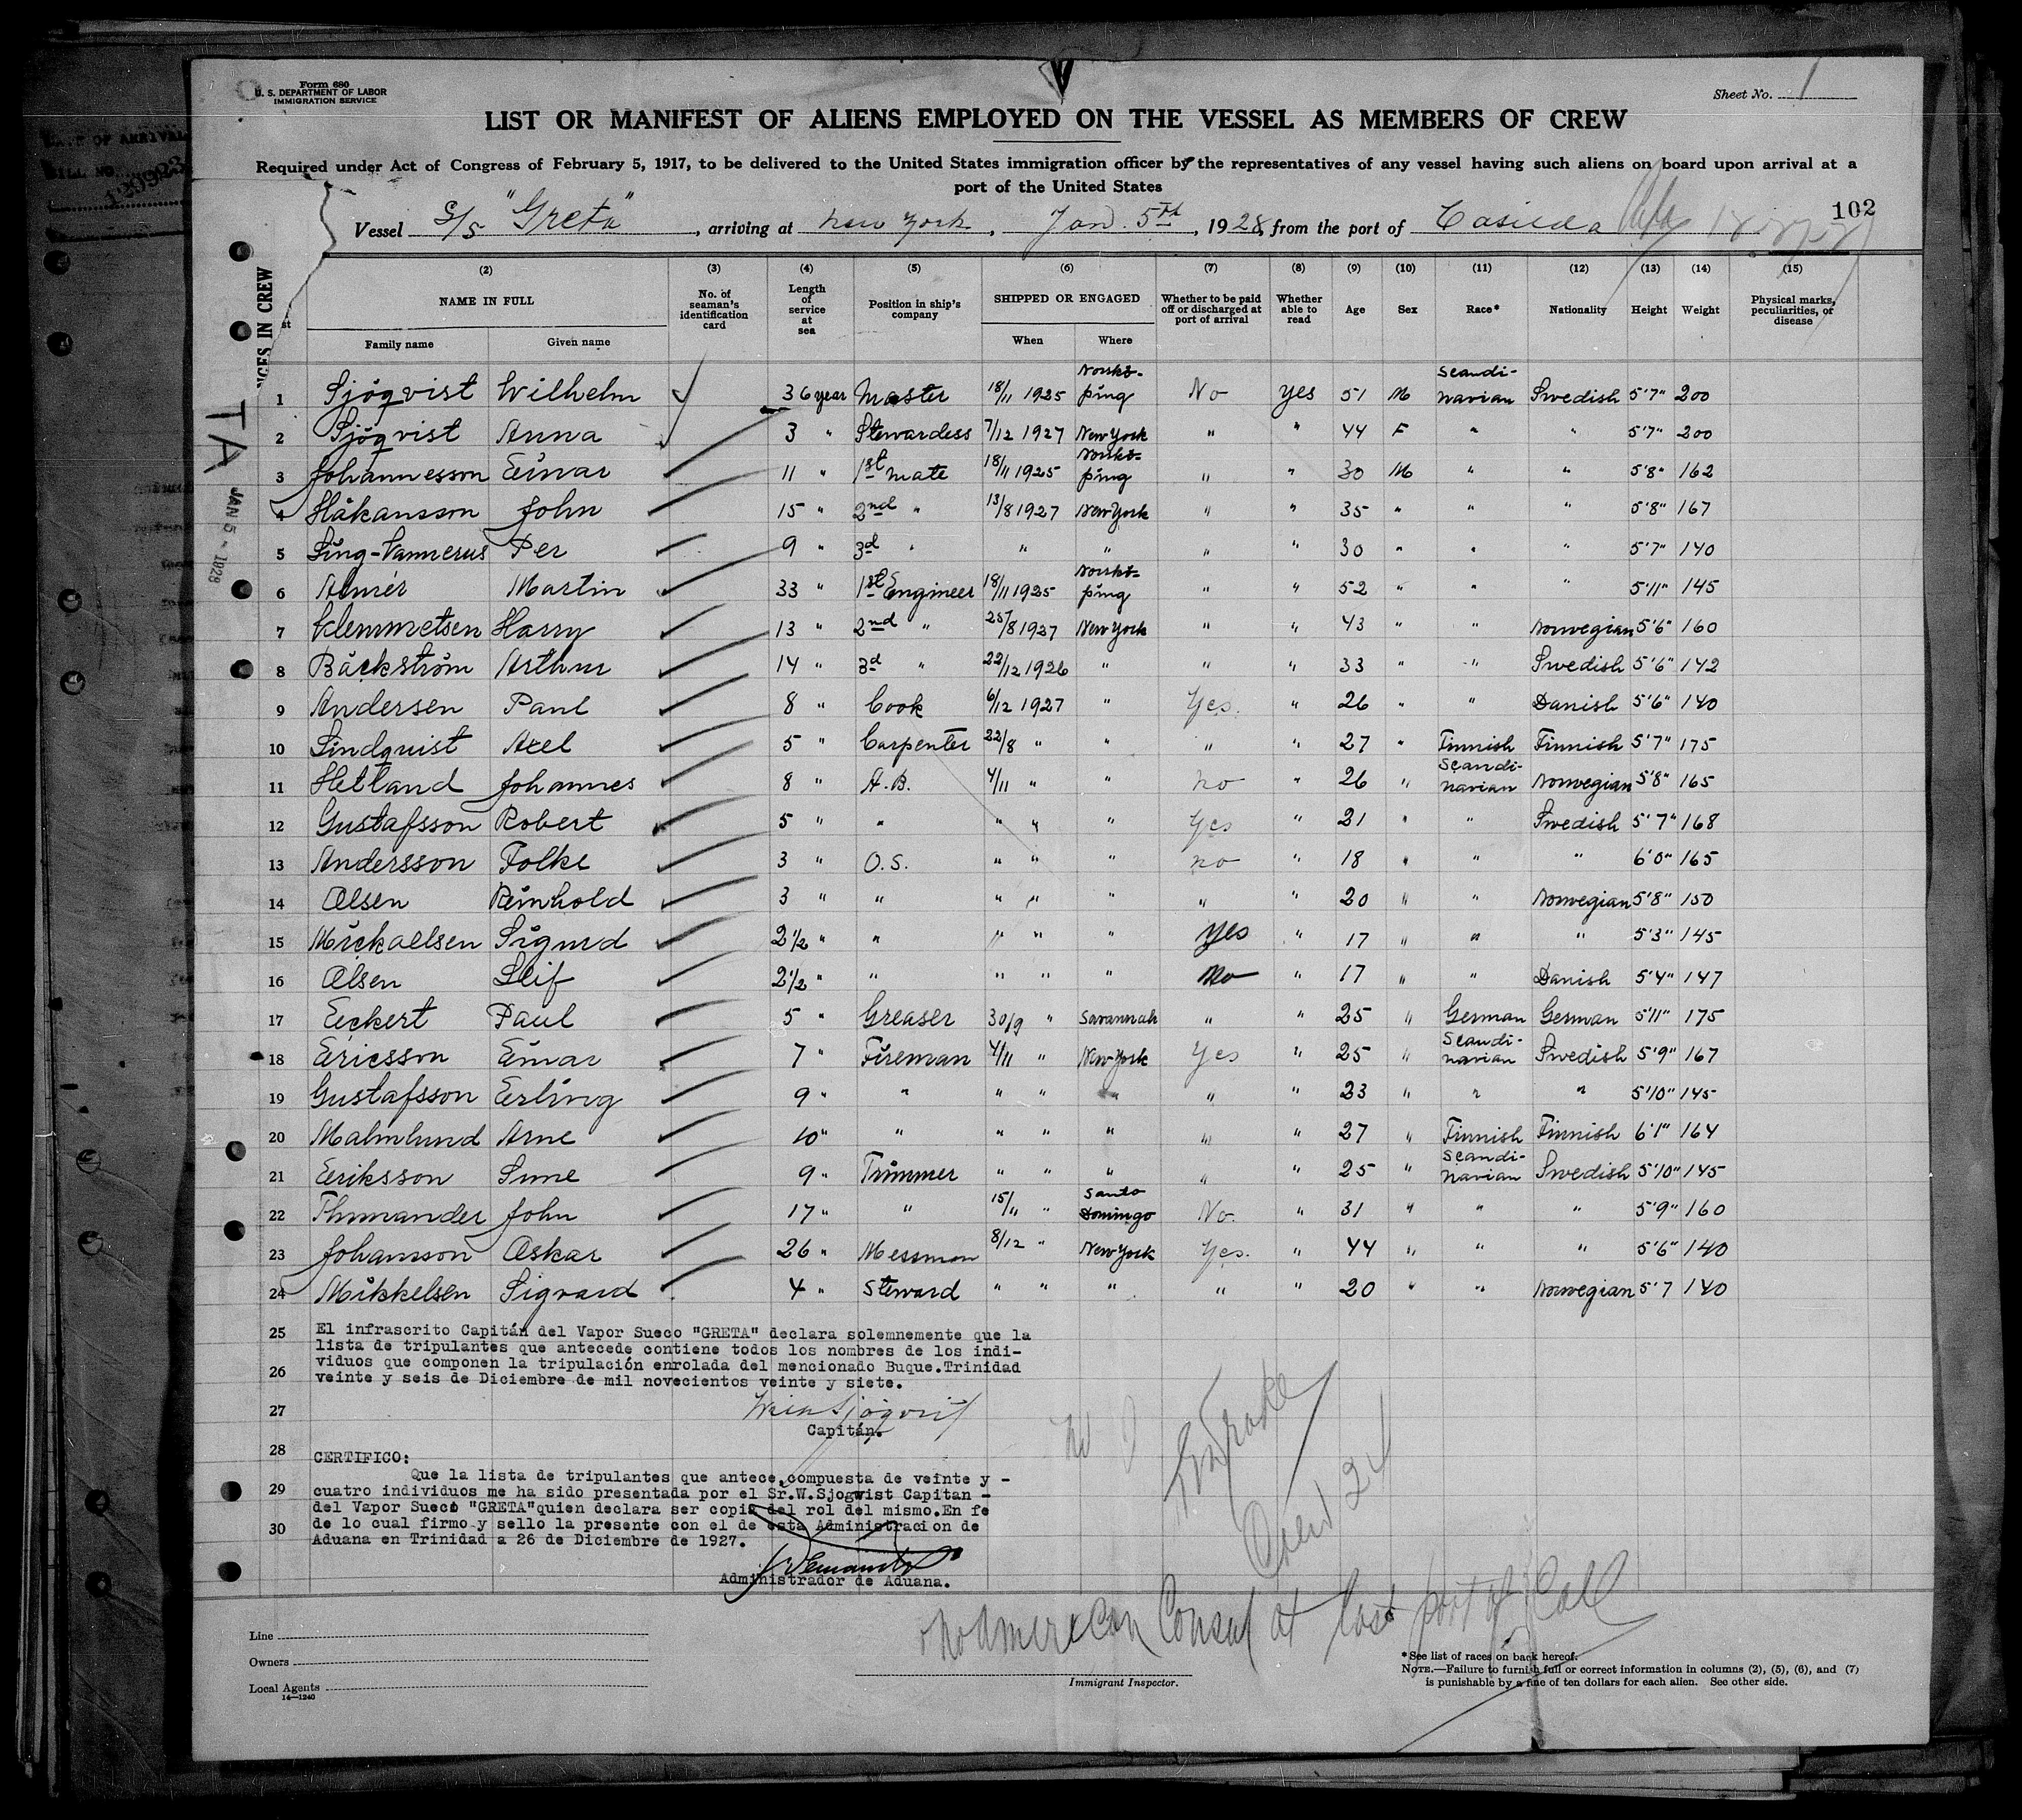 Form 680
U. S. DEPARTMENT OF LABOR
IMMIGRATION SERVICE
Sheet No. 1
LIST OR MANIFEST OF ALIENS EMPLOYED ON THE VESSEL AS MEMBERS OF CREW
Required under Act of Congress of February 5, 1917, to be delivered to the United States immigration officer by the representatives of any vessel having such aliens on board upon arrival at a
port of the United States
102
Vessel S/S "Greta", arriving at New York, Jan. 5th, 1928, from the port of Casilda
(2) (3) (4) (5) (6) (7) (8) (9) (10) (11) (12) (13) (14) (15)
NAME IN FULL
Family name Given name
No. of seaman's identification card
Length of service at sea
Position in ship's company
SHIPPED OR ENGAGED
When Where
Whether to be paid off or discharged at port of arrival
Whether able to read
Age
Sex
Race*
Nationality
Height
Weight
Physical marks, peculiarities, or disease
1 Sjöqvist Wilhelm 36 year Master 18/11 1925 Norrkö-ping No Yes 51 M Scandi-navian Swedish 5'7" 200
2 Sjöqvist Anna 3 " Stewardess 7/12 1927 New York " " 44 F " " 5'7" 200
3 Johannesson Einar 11 " 1st mate 18/11 1925 Norrkö-ping " " 30 M " " 5'8" 162
4 Håkansson John 15 " 2nd " 13/8 1927 New York " " 35 " " " 5'8" 167
5 Ling-Vannerus Per 9 " 3d " " " " " 30 " " " 5'7" 140
6 Almer Martin 33 " 1st Engineer 18/11 1925 Norrkö-ping " " 52 " " " 5'11" 145
7 Klemmetsen Harry 13 " 2nd " 25/8 1927 New York " " 43 " " Norwegian 5'6" 160
8 Bäckström Arthur 14 " 3d " 22/12 1926 " " " 33 " " Swedish 5'6" 142
9 Andersen Paul 8 " Cook 6/12 1927 " Yes. " 26 " " Danish 5'6" 140
10 Lindquist Axel 5 " Carpenter 22/8 " " " " 27 " Finnish Finnish 5'7" 175
11 Hetland Johannes 8 " A.B. 4/11 " " no " 26 " Scandi-navian Norwegian 5'8" 165
12 Gustafsson Robert 5 " " " " " Yes " 21 " " Swedish 5'7" 168
13 Andersson Folke 3 " O.S. " " " no " 18 " " " 6'0" 165
14 Olsen Reinhold 3 " " " " " " " 20 " " Norwegian 5'8" 150
15 Mickaelsen Sigurd 2 1/2 " " " " " yes " 17 " " " 5'3" 145
16 Olsen Leif 2 1/2 " " " " " No " 17 " " Danish 5'4" 147
17 Eckert Paul 5 " Greaser 30/9 " Savannah " " 25 " German German 5'11" 175
18 Ericsson Einar 7 " Fireman 4/11 " New York Yes " 25 " Scandi-navian Swedish 5'9" 167
19 Gustafsson Erling 9 " " " " " " " 23 " " " 5'10" 145
20 Malmlund Arne 10 " " " " " " " 27 " Finnish Finnish 6'1" 164
21 Eriksson Sune 9 " Trimmer " " " " " 25 " Scandi-navian Swedish 5'10" 145
22 Thunander John 17 " " 15/11 " Santo Domingo No. " 31 " " " 5'9" 160
23 Johansson Oskar 26 " Messman 8/12 " New York Yes. " 44 " " " 5'6" 140
24 Mikkelsen Sigvard 4 " Steward " " " " " 20 " " Norwegian 5'7 140
25
26
27
28
29
30
El infrascrito Capitán del Vapor Sueco "GRETA" declara solemnemente que la
lista de tripulantes que antecede contiene todos los nombres de los indi-
viduos que componen la tripulación enrolada del mencionado Buque.Trinidad
veinte y seis de Diciembre de mil novecientos veinte y siete.
Capitán.
CERTIFICO:
Que la lista de tripulantes que antece,compuesta de veinte y -
cuatro individuos me ha sido presentada por el Sr.W.Sjogwist Capitan -
del Vapor Sueco "GRETA"quien declara ser copia del rol del mismo.En fe
de lo cual firmo y sello la presente con el de esta Administracion de
Aduana en Trinidad a 26 de Diciembre de 1927.
Administrador de Aduana.
Crew 24
No American Consul at last port of Call
Line
Owners
Local Agents
14—1240
Immigrant Inspector.
*See list of races on back hereof.
NOTE.—Failure to furnish full or correct information in columns (2), (5), (6), and (7)
is punishable by a fine of ten dollars for each alien. See other side.
JAN 5 - 1928